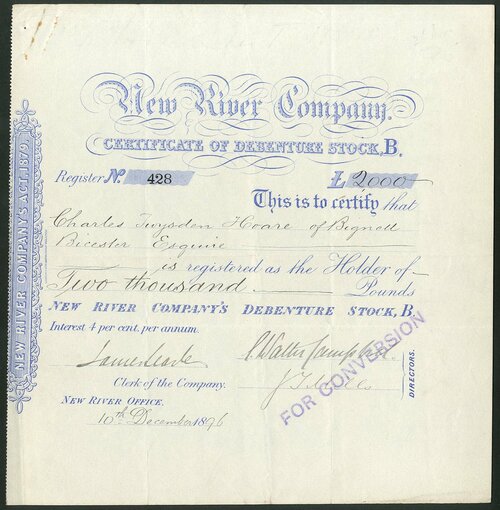 New River Company.
CERTIFICATE OF DEBENTURE STOCK, B.
Register No. 428 £2000
This is to certify that
Charles Twysden Hoare of Bignell
Bicester Esquire
is registered as the Holder of
Two thousand Pounds
NEW RIVER COMPANY'S DEBENTURE STOCK, B.
Interest 4 per cent. per annum.
Clerk of the Company.
DIRECTORS.
NEW RIVER OFFICE.
10th December 1896
FOR CONVERSION
NEW RIVER COMPANY'S ACT, 1879.